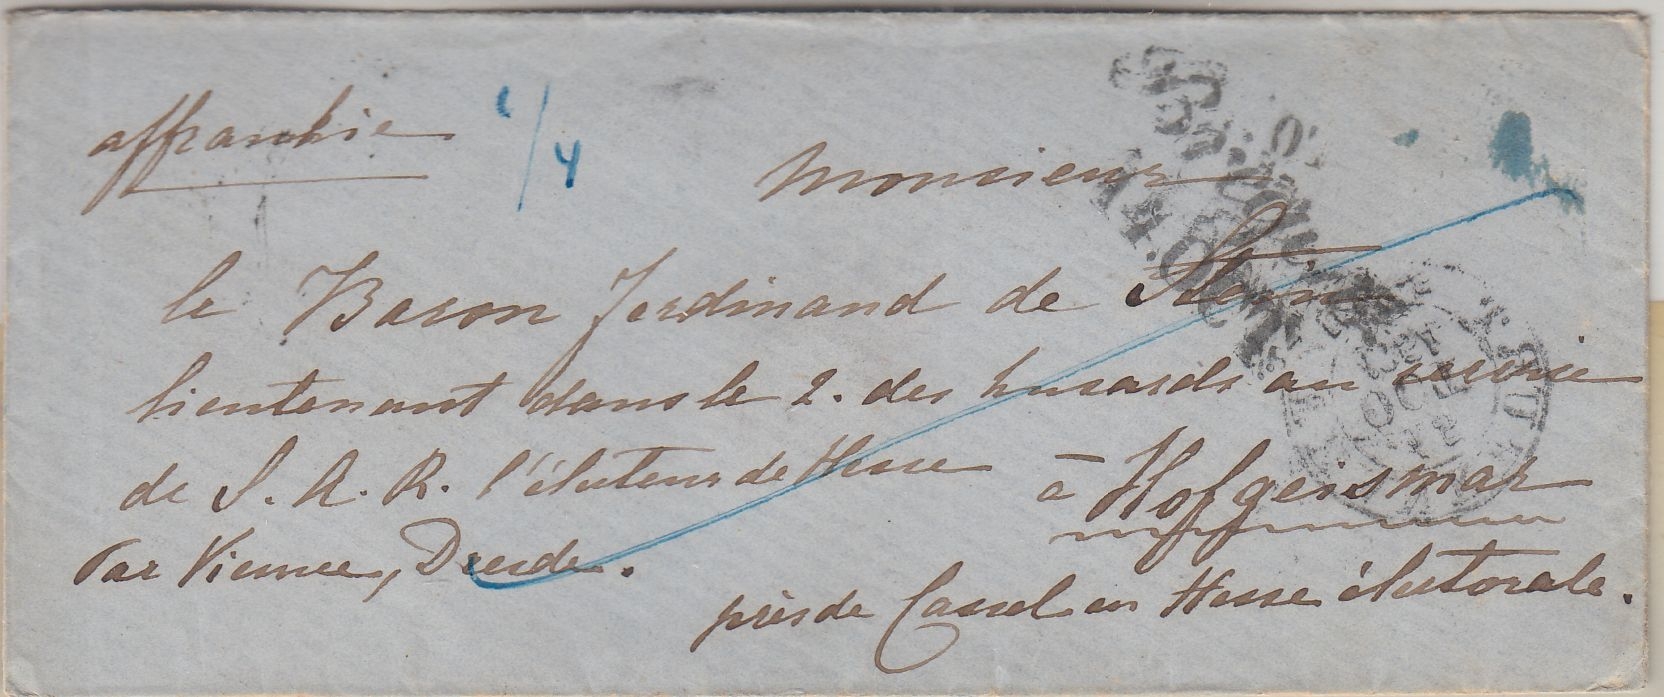 affranchie
1/4
Monsieur
le Baron Ferdinand de Stein
lieutenant dans le 2. des husards au service
de S. A. R. l'électeur de Hesse
à Hofgeismar
Par Vienne, Dresde.
près de Cassel en Hesse électorale.
14. Oct
OCT